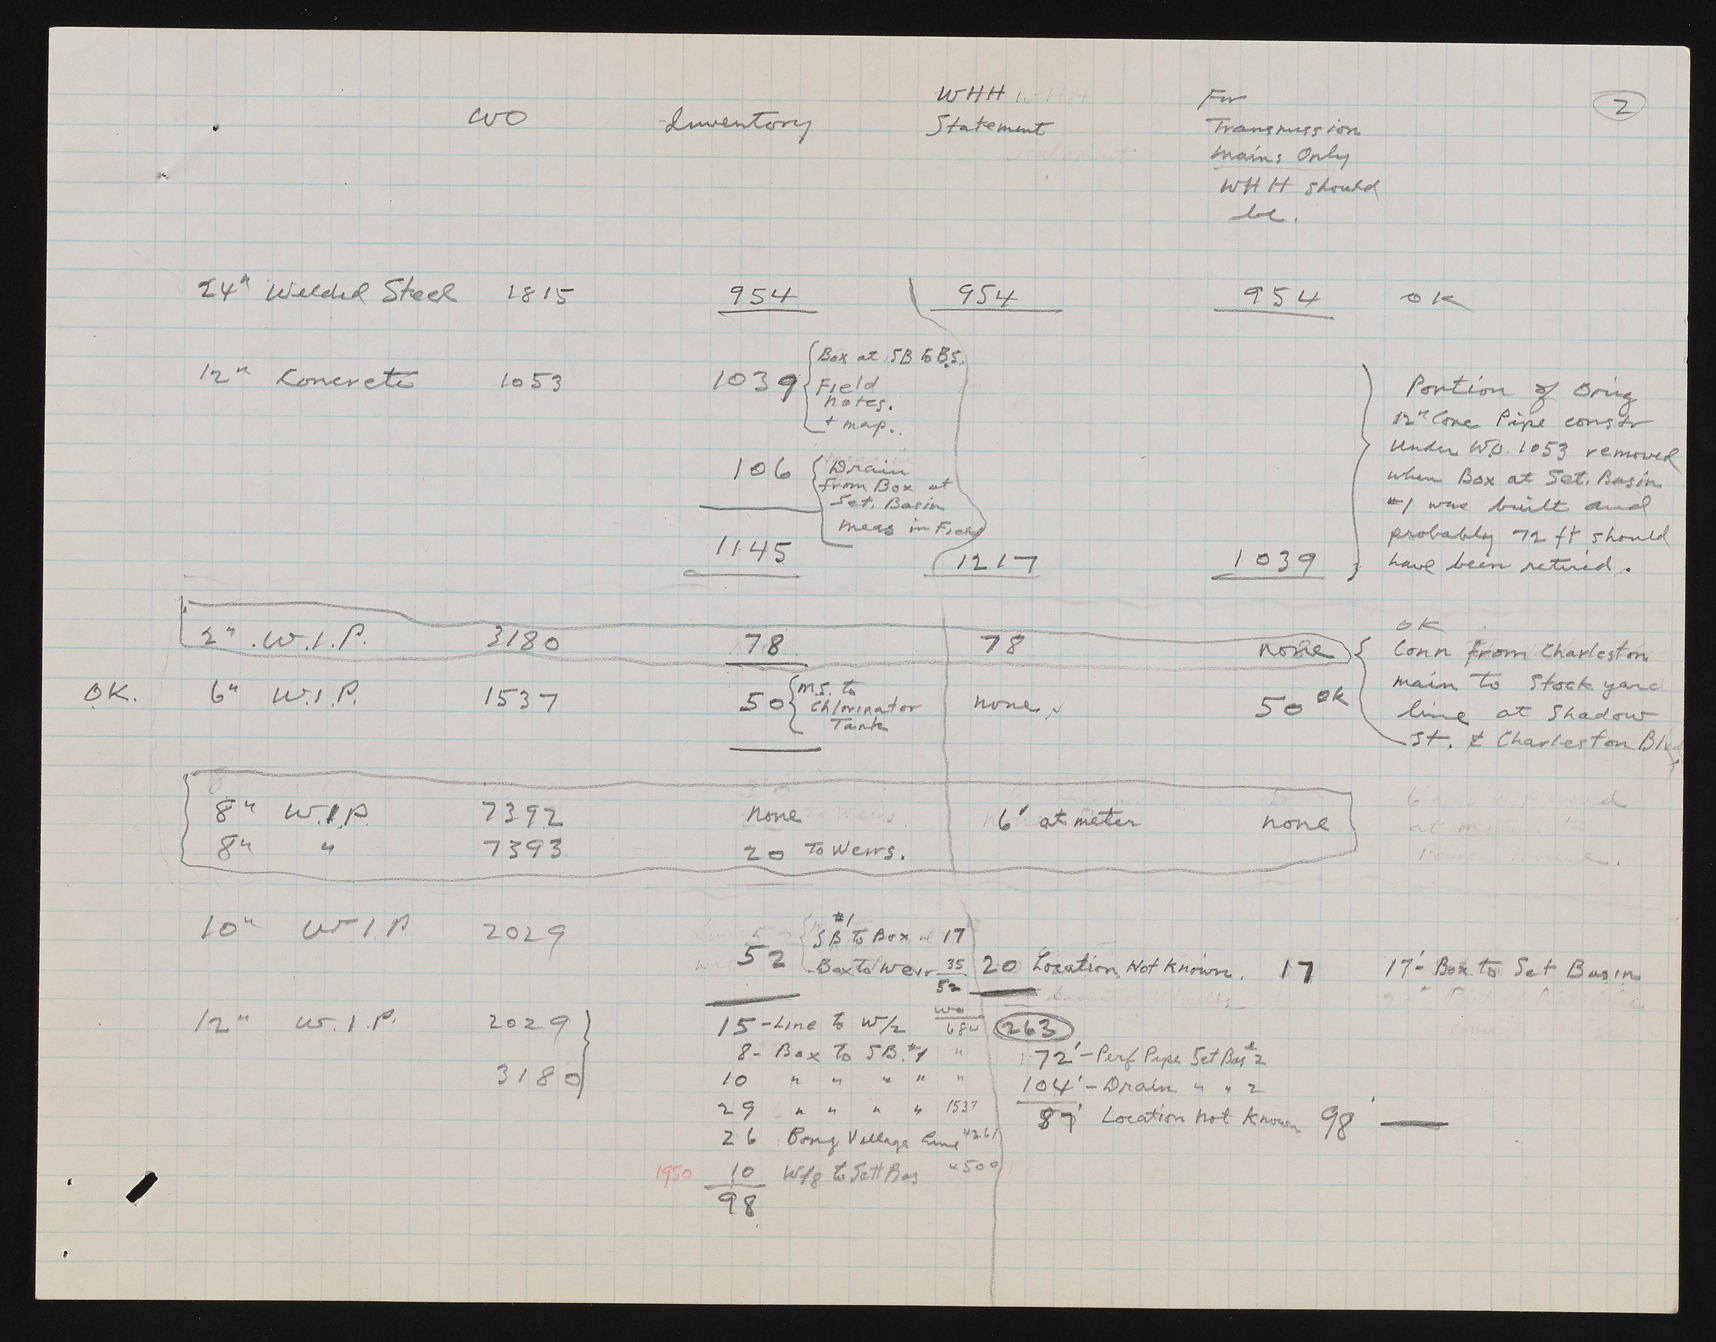 2
WO Inventory WHH Statement For Transmission Mains Only WHH should be.
24" Welded Steel 1815 954 954 954 OK
12" Concrete 1053 1039 { Box at SB to B.S.
Field
notes.
+ map.
106 { Drain
from Box at
Set. Basin
meas in Field
1145 1217 1039
Portion of Orig
12" Conc Pipe constr
under W.O. 1053 removed
when Box at Set. Basin
#1 was built and
probably 72 ft should
have been retired.
2" W.I.P. 3180 78 78 none
OK
Conn from Charleston
main to Stock yard
line at Shadow
St. & Charleston Blvd
OK. 6" W.I.P. 1537 50 { M.S. to
Chlorinator
Tank
none 50 OK
8" W.I.P. 7392 none 6' at meter none
8" " 7393 20 To Weirs.
10" W.I.P 2029 52 { #1
SB to Box 17
Box to Weir 35
52
20 Location Not Known. 17 17'- Box to Set Basin
12" W.I.P. 2029 15 - Line to W/2 WO 684 263
3180 8 - Box To SB. #1 " 72' - Perf Pipe Set Bas #2
10 " " " " " 104' - Drain " " 2
29 " " " " 1537 87' Location not known 98'
26 Bong Village Line 4261
1950 10 W/8 to Sett Bas "500
98